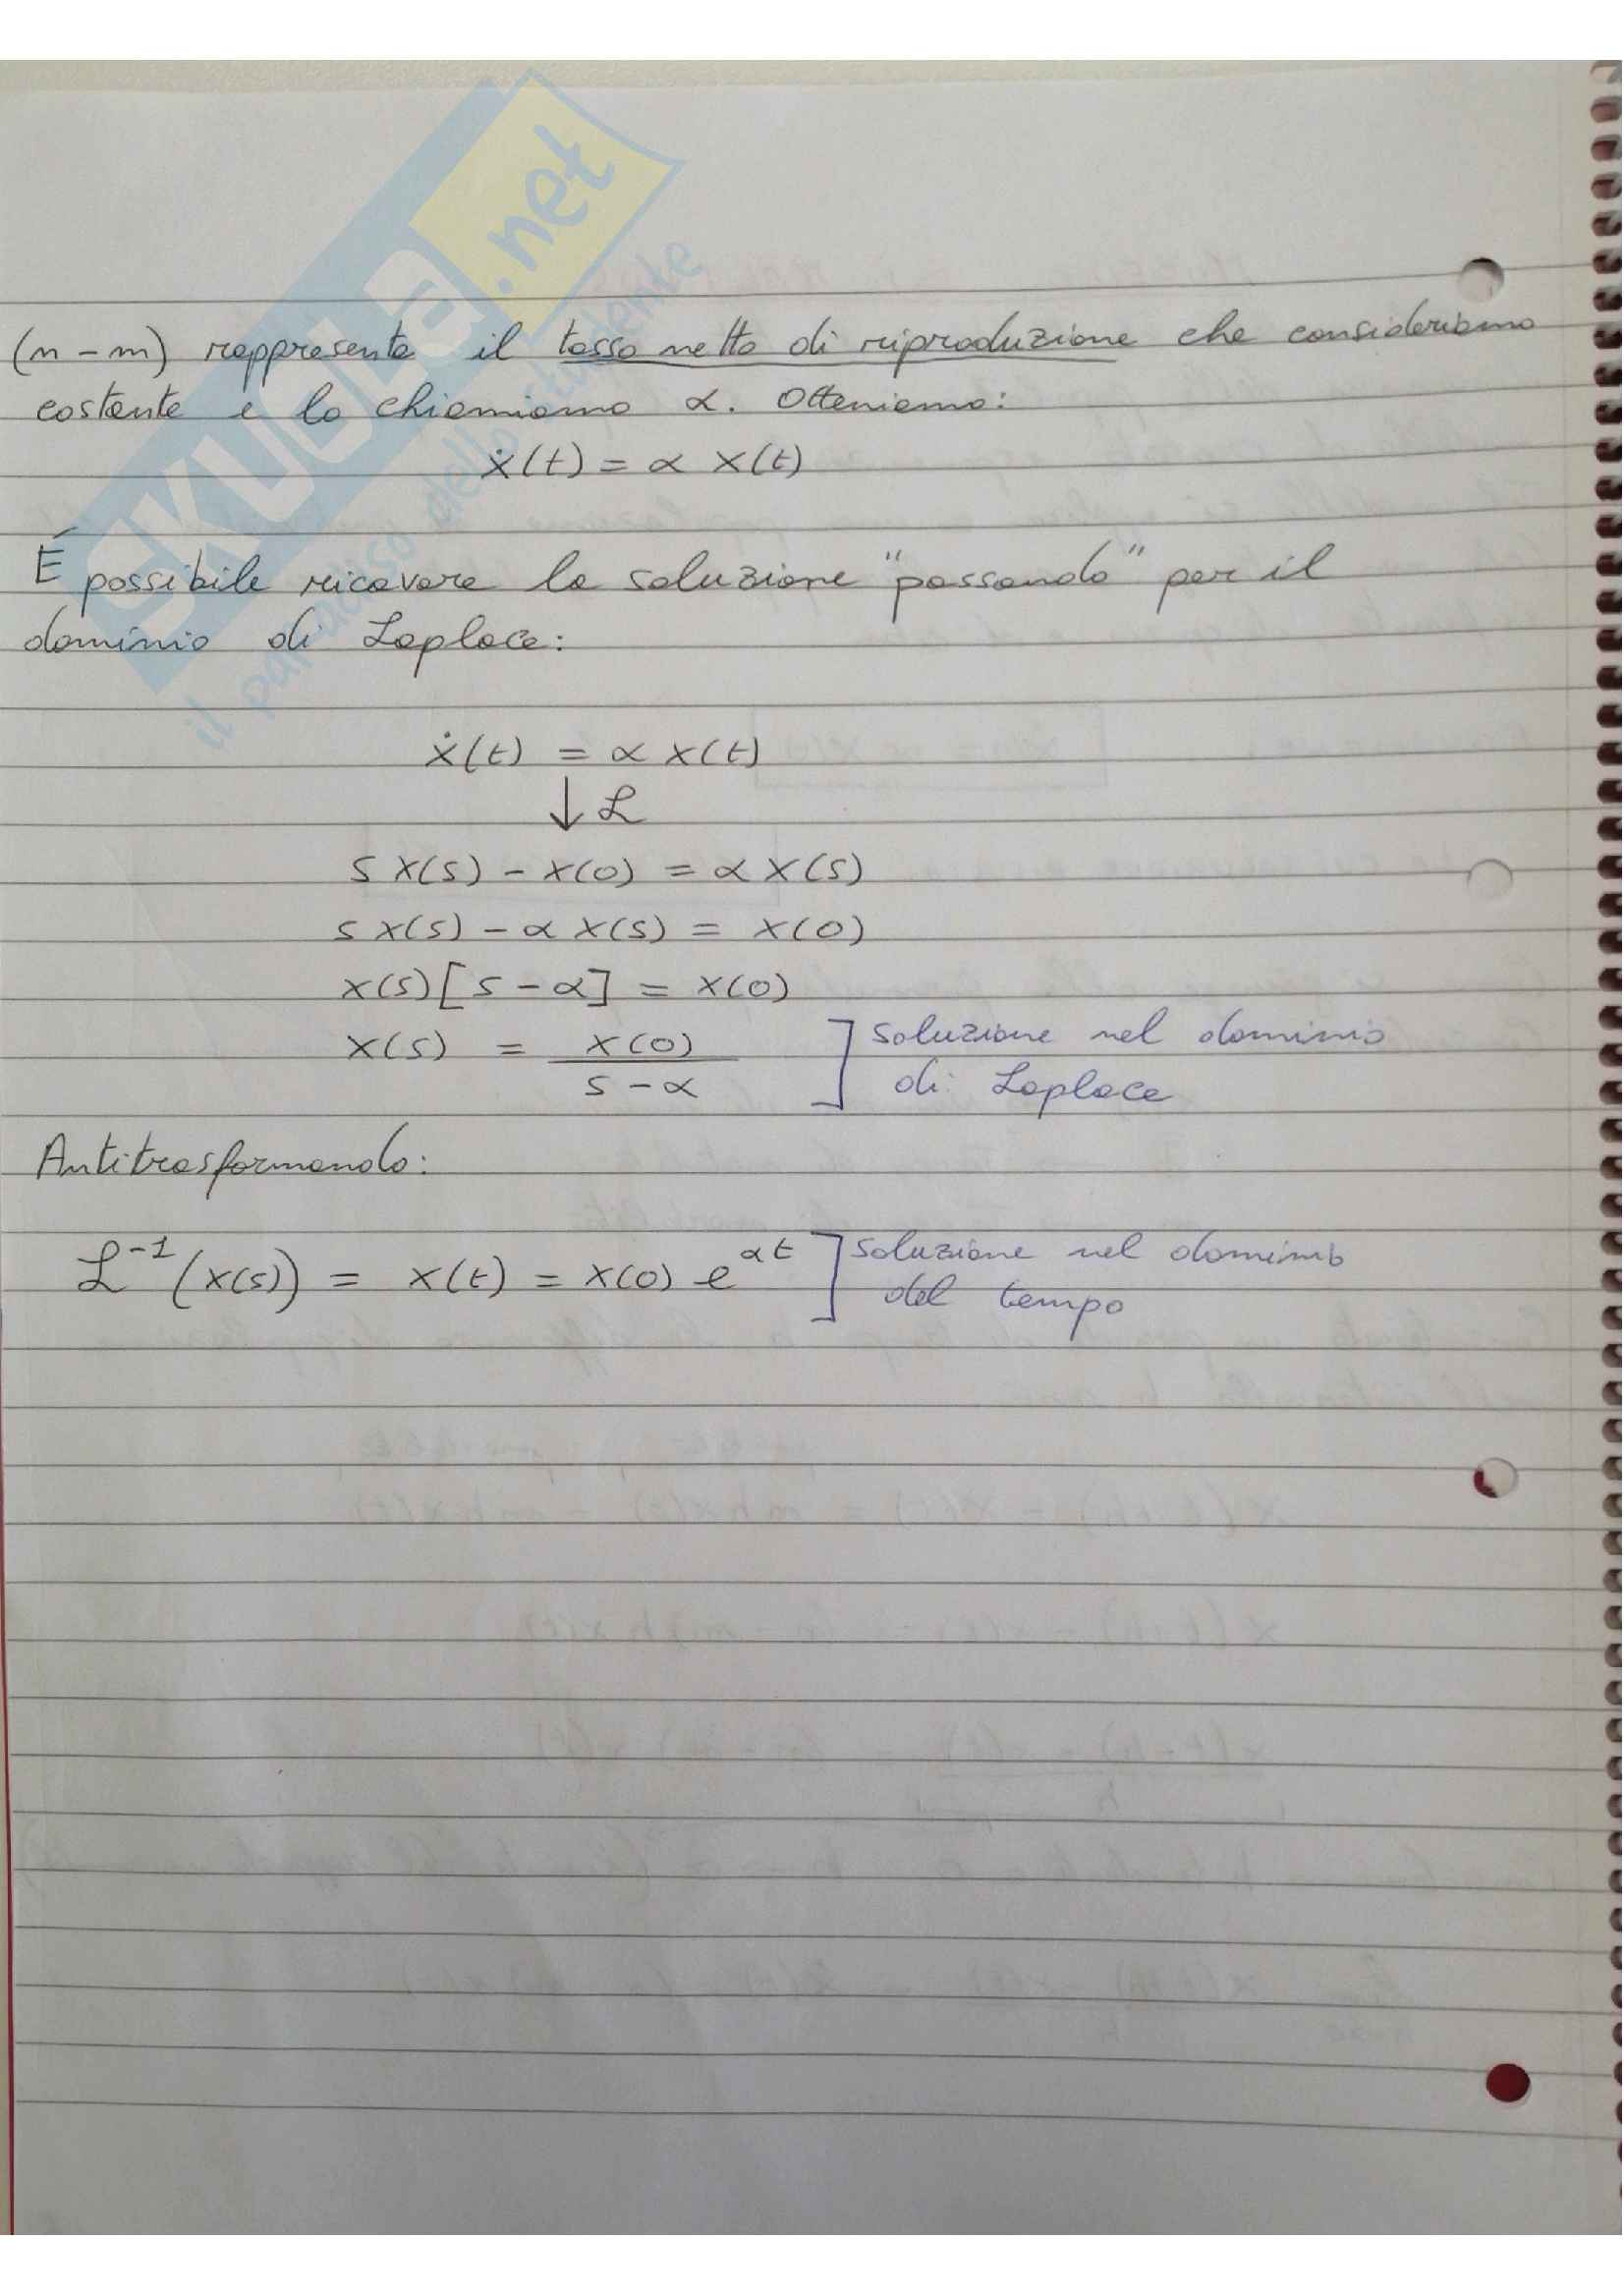 SKUOLA.net
il paradiso dello studente
(n - m) rappresenta il tasso netto di riproduzione che consideriamo
costante e lo chiamiamo α. Otteniamo:
ẋ(t) = α x(t)
É possibile ricavare la soluzione "passando" per il
dominio di Laplace:
ẋ(t) = α x(t)
↓ ℒ
s x(s) - x(0) = α x(s)
s x(s) - α x(s) = x(0)
x(s) [s - α] = x(0)
x(s) = x(0) / (s - α) ] soluzione nel dominio
di Laplace
Antitrasformando:
ℒ⁻¹ (x(s)) = x(t) = x(0) e^αt ] soluzione nel dominio
del tempo